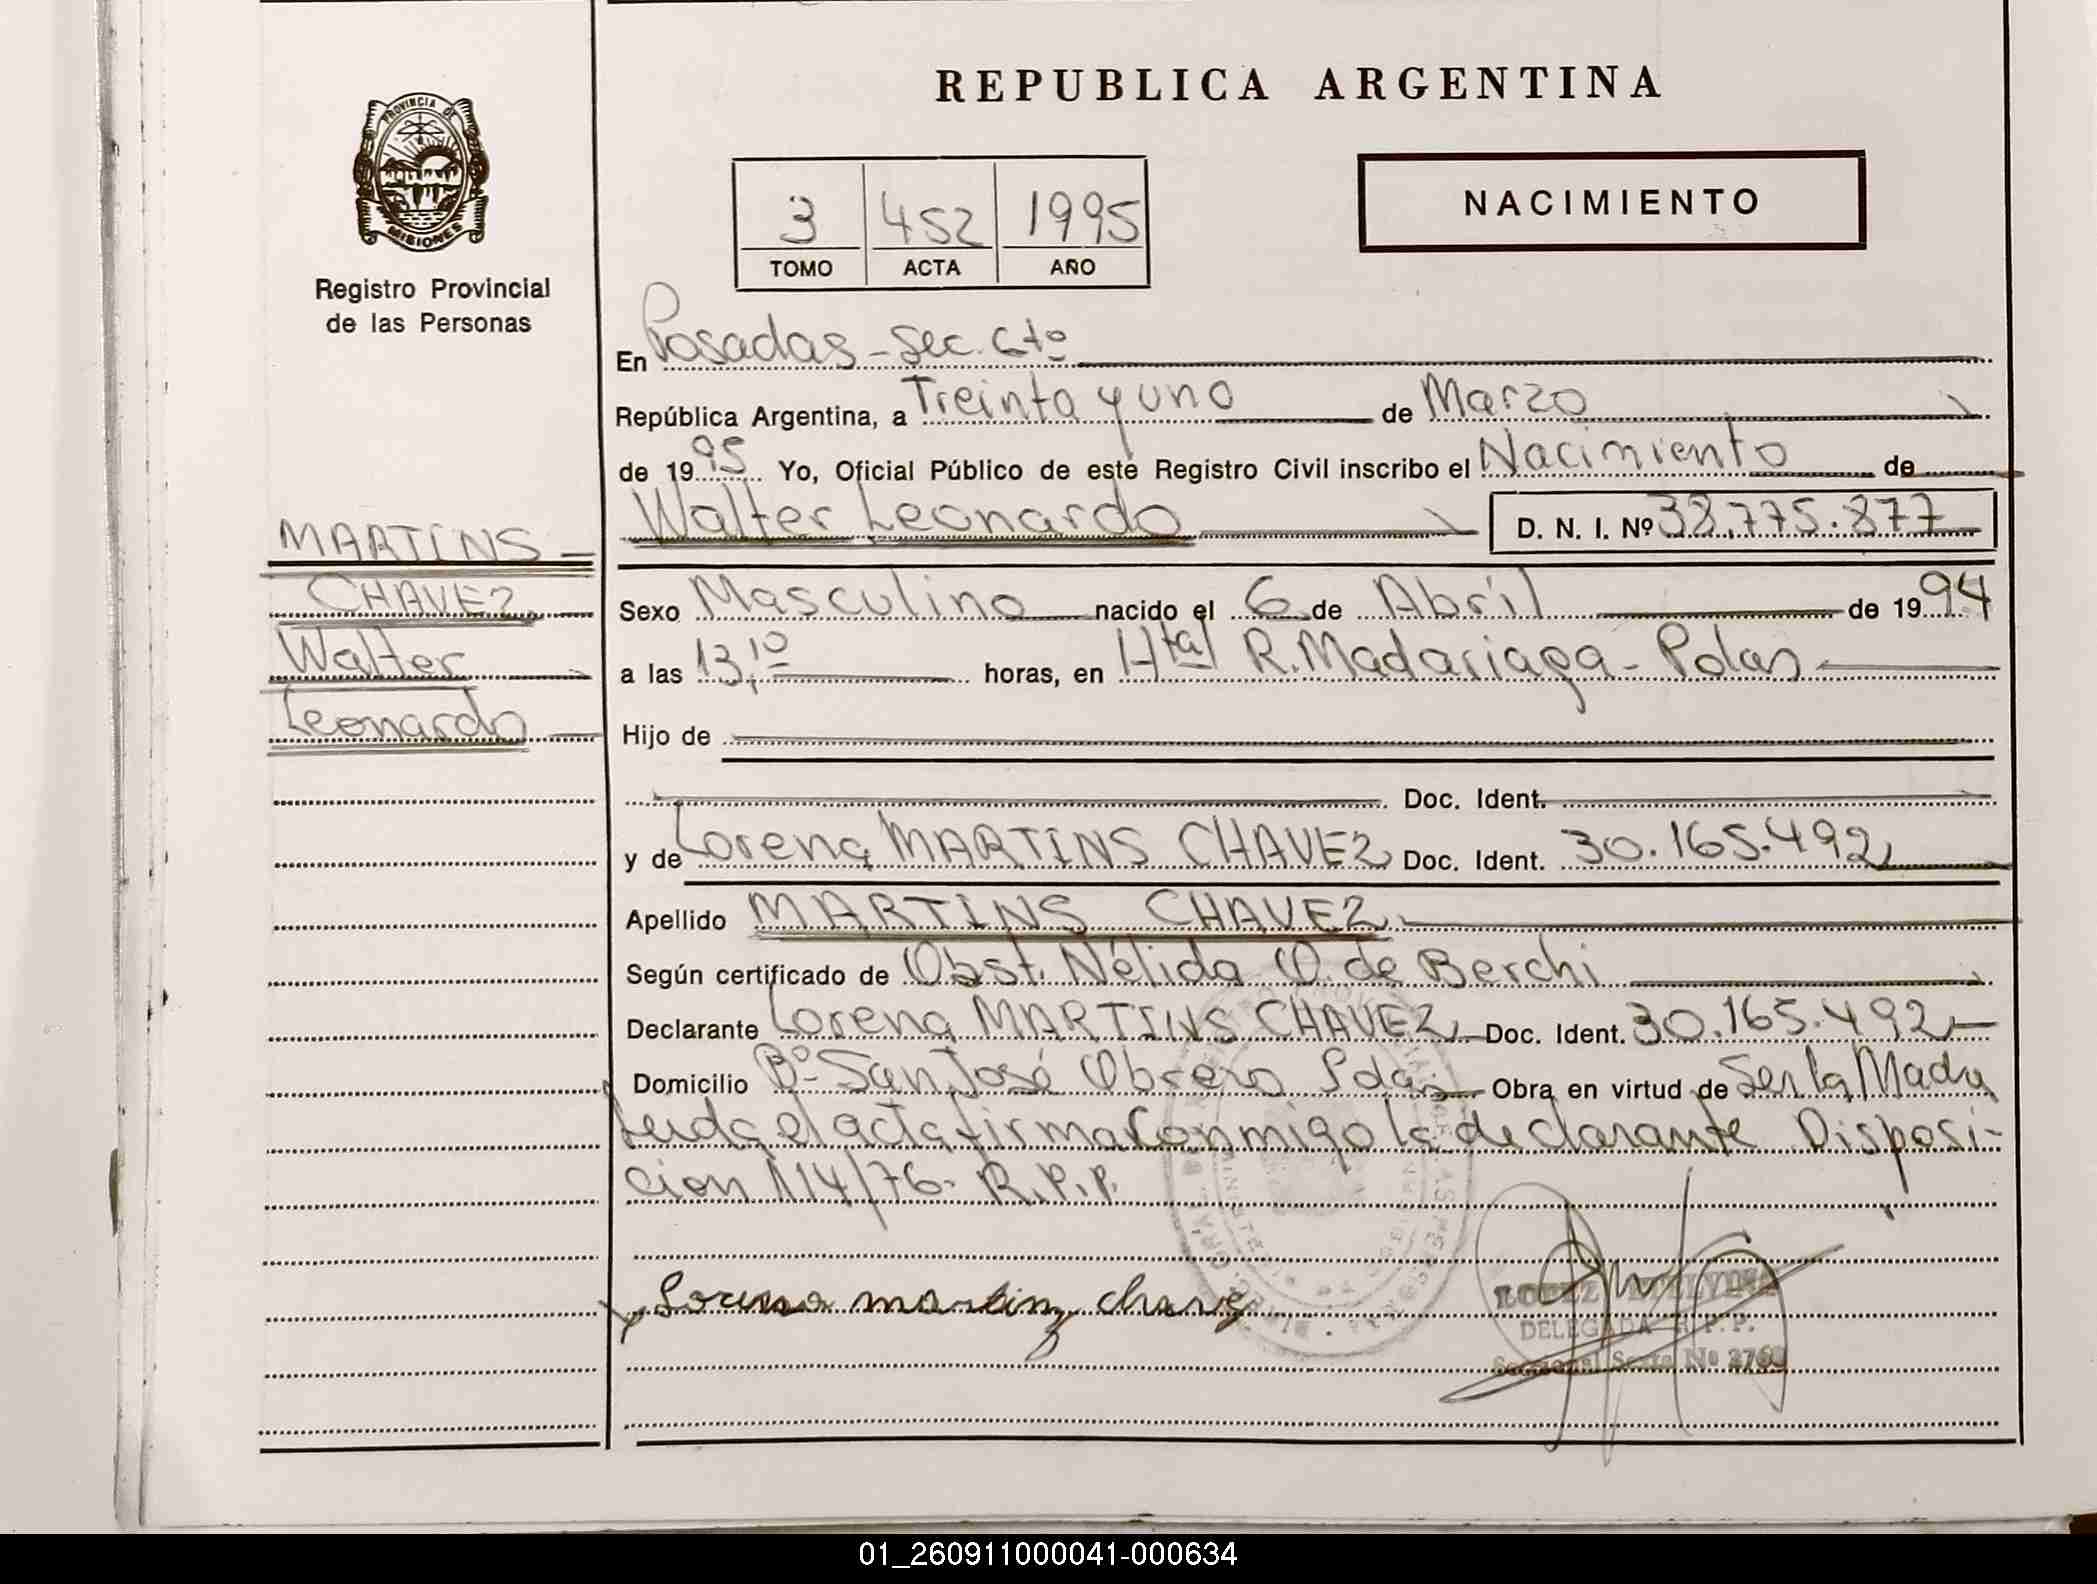 PROVINCIA DE
MISIONES
Registro Provincial
de las Personas
REPUBLICA ARGENTINA
NACIMIENTO
3 452 1995
TOMO ACTA AÑO
En Posadas - Sec. 6to
República Argentina, a Treinta y uno de Marzo
de 1995 Yo, Oficial Público de este Registro Civil inscribo el Nacimiento de
Walter Leonardo D. N. I. Nº 38.775.877
MARTINS
CHAVEZ
Walter
Leonardo
Sexo Masculino nacido el 6 de Abril de 1994
a las 13,10 horas, en Htal R. Madariaga - Pdas
Hijo de
Doc. Ident.
y de Lorena MARTINS CHAVEZ Doc. Ident. 30.165.492
Apellido MARTINS CHAVEZ
Según certificado de Obst. Nélida O. de Berchi
Declarante Lorena MARTINS CHAVEZ Doc. Ident. 30.165.492
Domicilio Bº San José Obrero Pdas Obra en virtud de Ser la Madre
Leida el acta firma conmigo la declarante Disposi-
cion 114/76- R.P.P.
Lorena martinz chavez
LOPEZ
DELEGADA R.P.P.
Seccional Sexta Nº
01_260911000041-000634